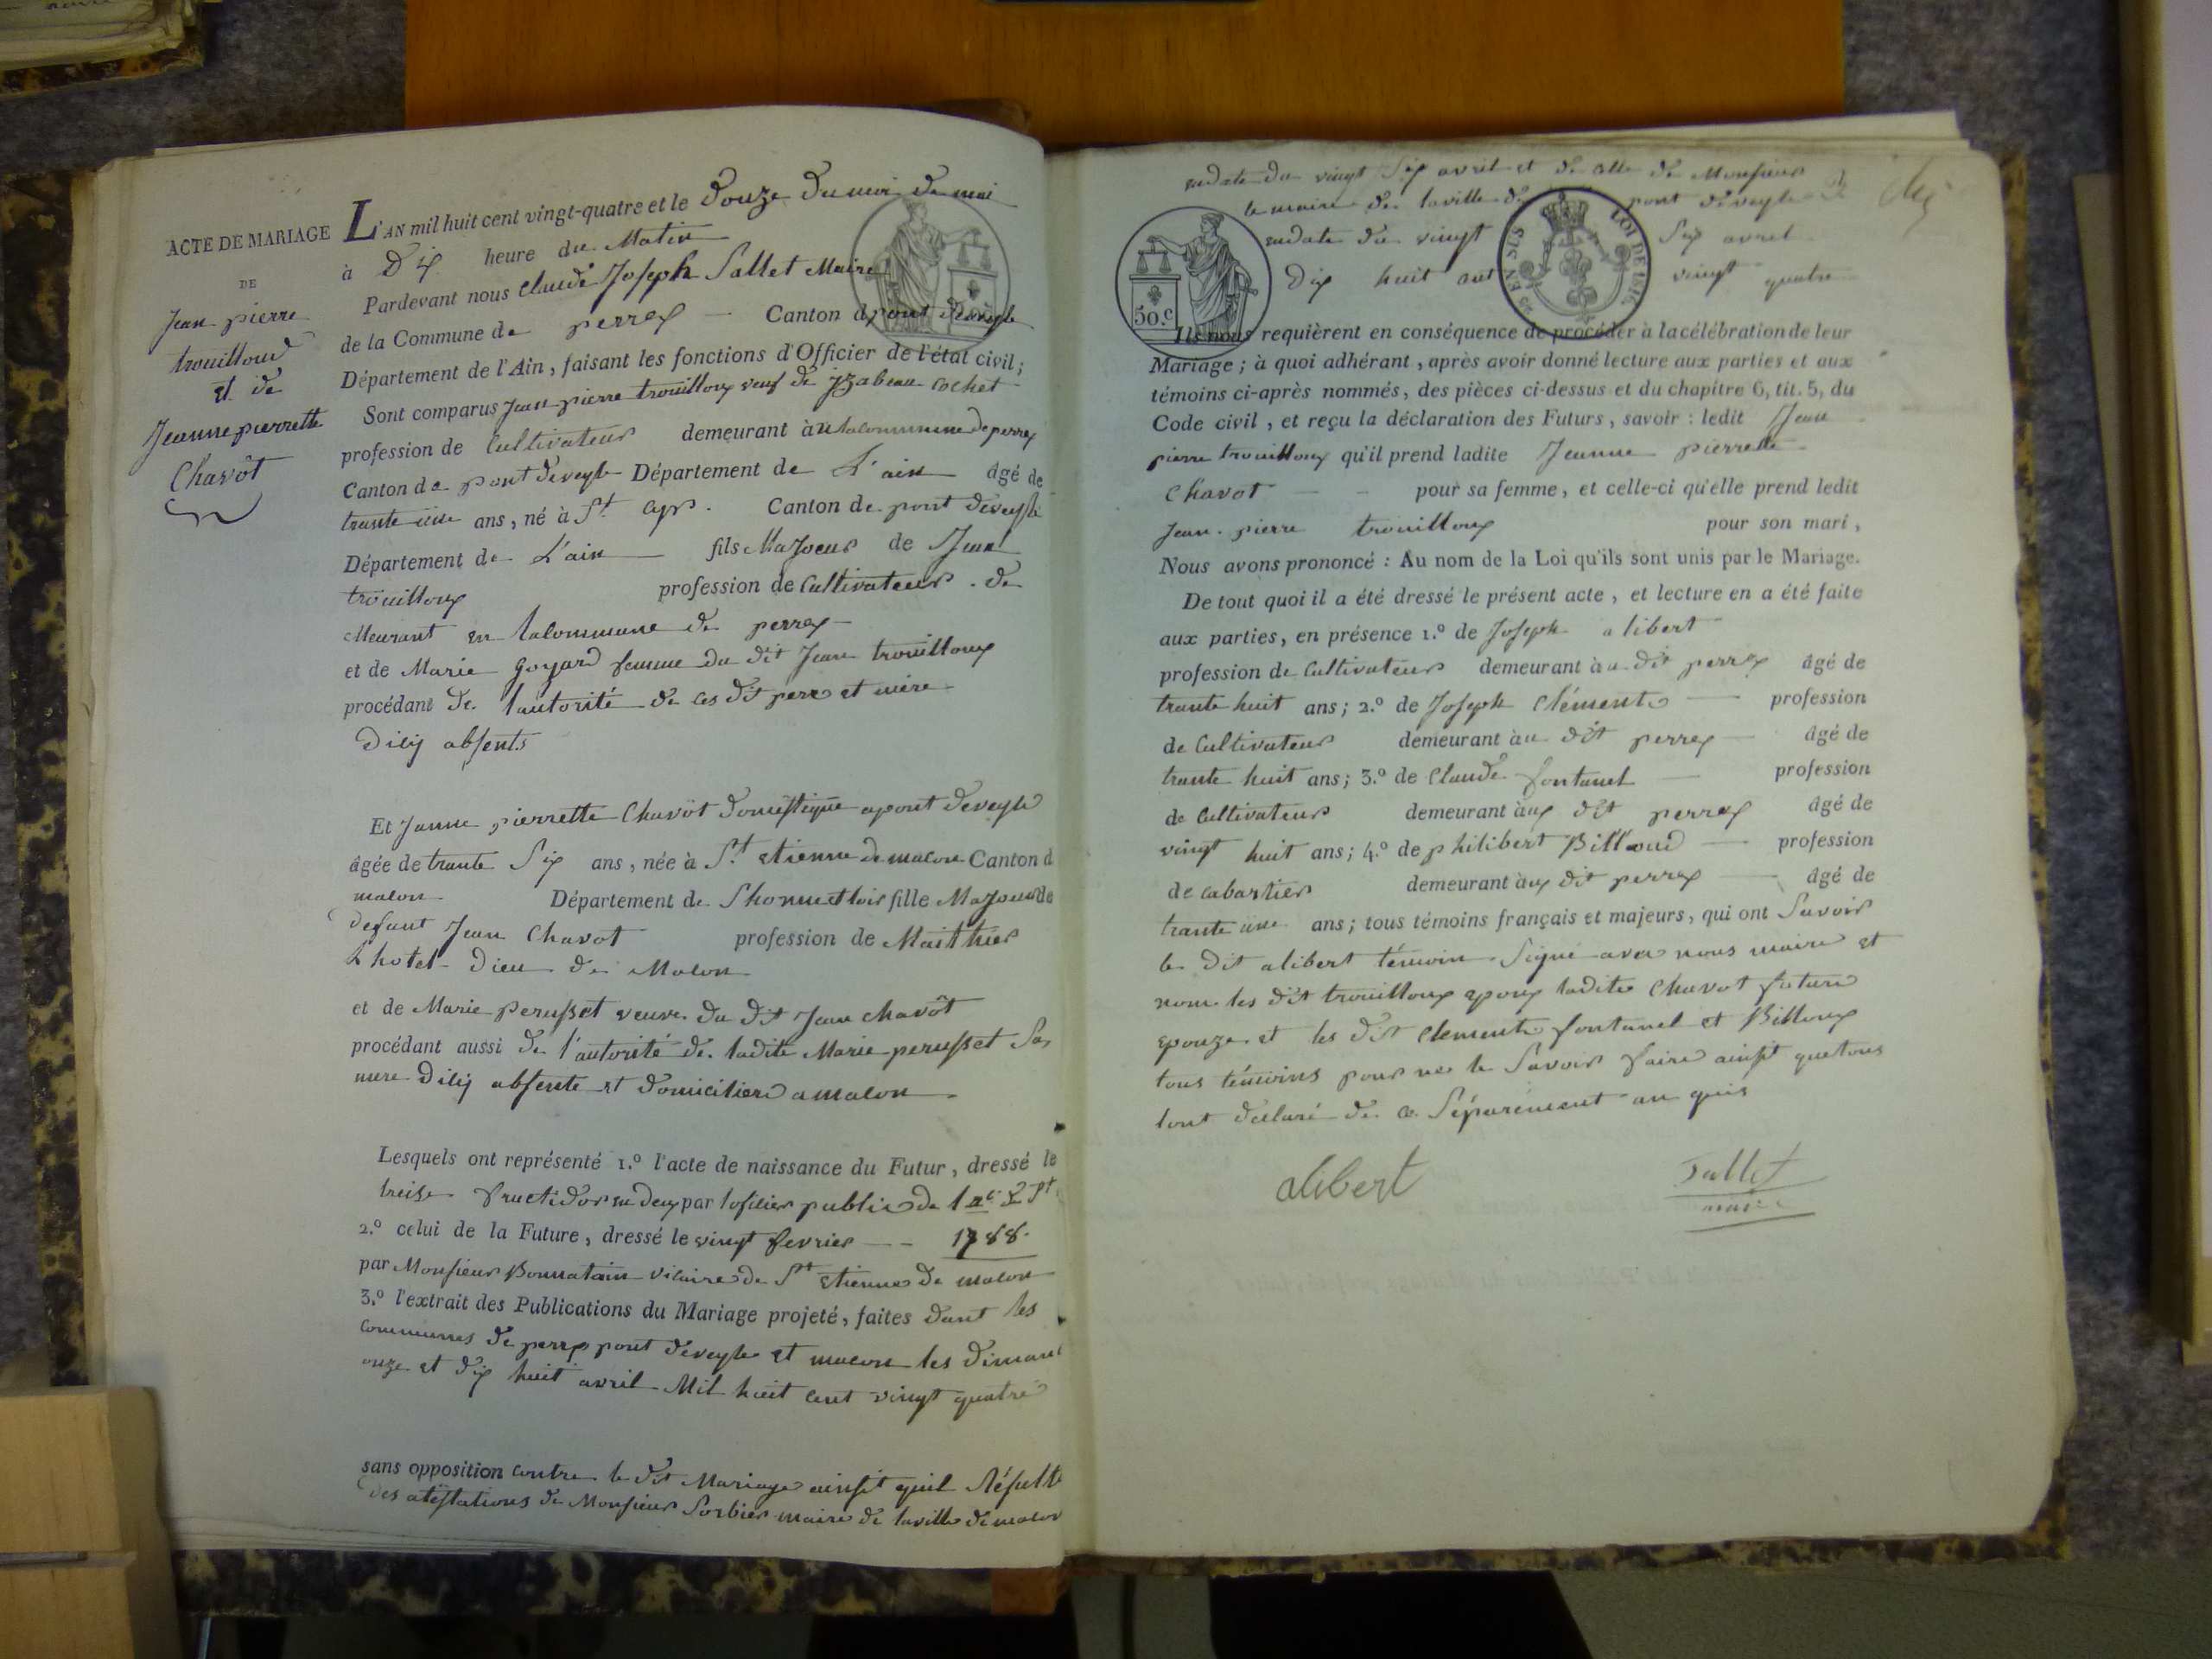 ACTE DE MARIAGE
DE
Jean pierre
trouilloud
et de
Jeanne pierrette
Chavôt
L'AN mil huit cent vingt-quatre et le Douze Du moi de mai
à Dix heure du Matin
Pardevant nous Claude Joseph Sallet Maire
de la Commune de perrex — Canton d pont deveyle
Département de l'Ain, faisant les fonctions d'Officier de l'état civil;
Sont comparus Jean pierre trouilloux veuf de yzabeau Cochet
profession de Cultivateur demeurant à en la commune de perrex
Canton de pont deveyle Département de L'ain âgé de
trante une ans, né à St. Cyr. Canton de pont deveyle
Département de L'ain — fils Majeur de Jean
trouilloux profession de Cultivateur. de
Meurant en la commune de perrex —
et de Marie Goyard femme du dit Jean trouilloux
procédant de l'autorité de ces dit pere et mére
Dicy absents
Et Janne pierrette Chavôt Domestique a pont deveyle
âgée de trante Six ans, née à St. etienne de macon Canton d
macon Département de Shonne et loir fille Majeur de
defunt Jean Chavot profession de Maitthier
L hotel - Dieu de Macon
et de Marie perusset veuve du dit Jean chavôt
procédant aussi de l'autorité de ladite Marie perusset Sa
mere Dicy absente et Domiciliere a macon —
Lesquels ont représenté 1.º l'acte de naissance du Futur, dressé le
treize fructidor an deux par lofficier public de
2.º celui de la Future, dressé le vingt fevrier — 1788.
par Monsieur Bonnatain vicaire de St etienne de macon
3.º l'extrait des Publications du Mariage projeté, faites dant les
communes de perrex pont deveyle et macon les dimanc
onze et dix huit avril Mil huit cent vingt quatre
sans opposition contre le dit Mariage ainsit quil Résulte
des atestations de Monsieur Sorbier maire de la ville de macon
en date du vingt Six avril et de celle de Monsieur
le maire de la ville de pont deveyle
en date du vingt Six avril
Dix huit cent vingt quatre
50.c
EN SUS
LOI DE 1816
Ils nous requièrent en conséquence de procéder à la célébration de leur
Mariage; à quoi adhérant, après avoir donné lecture aux parties et aux
témoins ci-après nommés, des pièces ci-dessus et du chapitre 6, tit. 5, du
Code civil, et reçu la déclaration des Futurs, savoir: ledit Jean
pierre trouilloux qu'il prend ladite Jeanne pierrette
Chavot — — pour sa femme, et celle-ci qu'elle prend ledit
Jean. pierre trouilloux pour son mari,
Nous avons prononcé: Au nom de la Loi qu'ils sont unis par le Mariage.
De tout quoi il a été dressé le présent acte, et lecture en a été faite
aux parties, en présence 1.º de Joseph alibert
profession de Cultivateur demeurant à u dit perrex âgé de
trante huit ans; 2.º de Joseph Clément — profession
de Cultivateur demeurant à u dit perrex — âgé de
trante huit ans; 3.º de Claude fontanel — profession
de Cultivateur demeurant à ux dit perrex âgé de
vingt huit ans; 4.º de philibert Billoud — profession
de cabartier demeurant à ux dit perrex — âgé de
trante une ans; tous témoins français et majeurs, qui ont Savoir
le dit alibert témoin Signé avec nous maire et
nom les dit trouilloux epoux ladite Chavot future
epouze et les dit Clement fontanel et Billoux
tous témoins pour ne le Savoir faire ainsit que tous
lont declaré de ce Séparément an quis
alibert
Sallet
maire